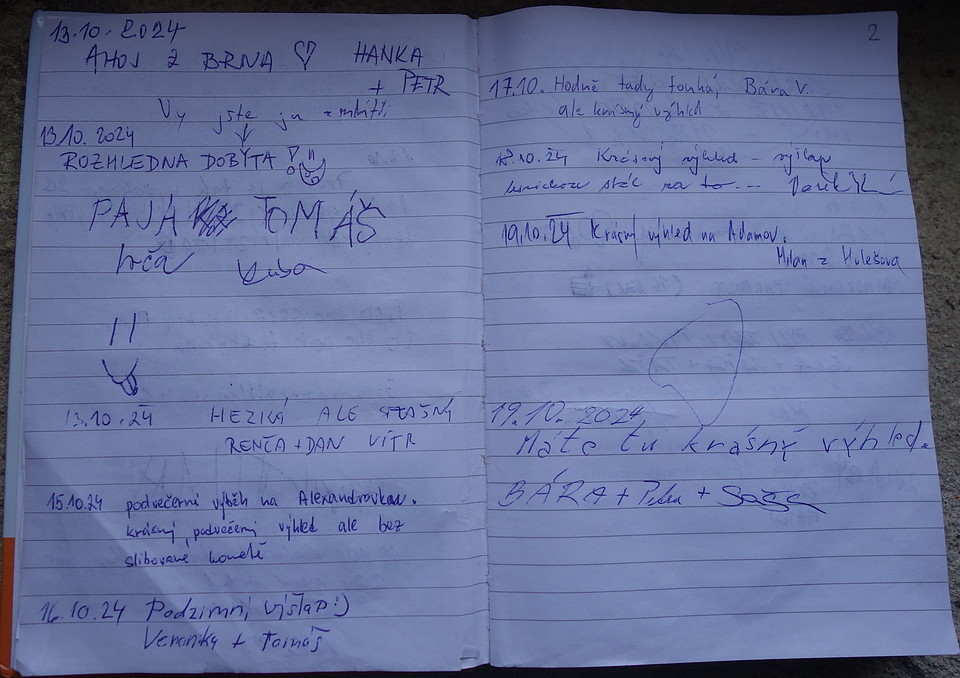 13.10.2024
AHOJ Z BRNA ♡ HANKA
+ PETR
Vy jste ju
13.10.2024
ROZHLEDNA DOBYTA!
PAJÁ TOMÁŠ
Kuba
13.10.24 HEZKÁ ALE STRAŠNÝ
RENČA + DAN VÍTR
15.10.24 podvečerní výběh na Alexandrovkou.
krásný podvečerní výhled ale bez
slibované komety
16.10.24 Podzimní výšlap :)
Veronika + Tomáš
2
17.10. Hodně tady fouká, Bára V.
ale krásný výhled
18.10.24 Krásný výhled – výšlap
stál za to...
19.10.24 Krásný výhled na Adamov.
Milan z Holešova
19.10.2024
Máte tu krásný výhled.
BÁRA + Péťa + Saša